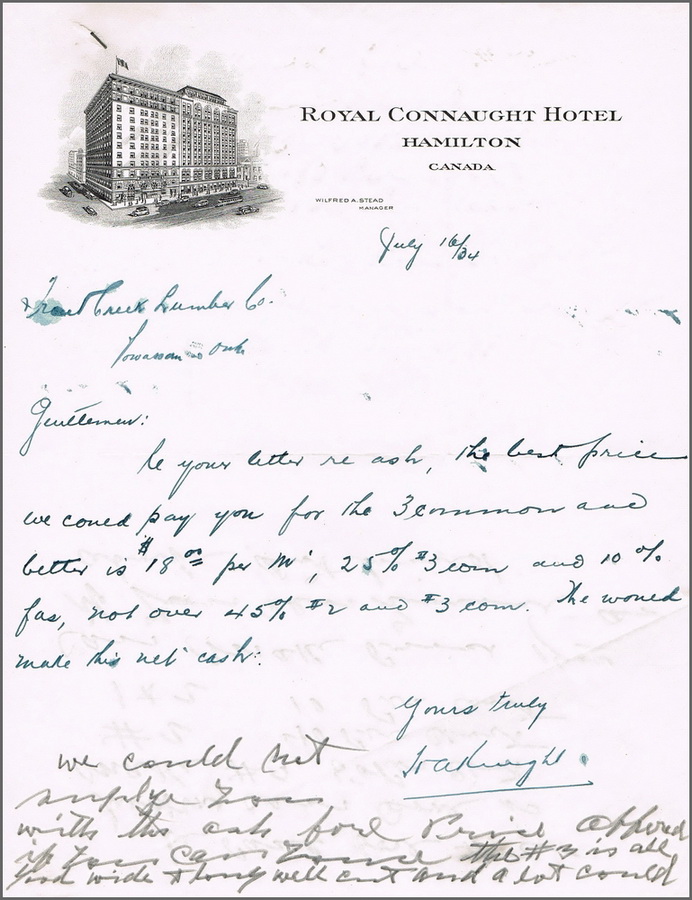 ROYAL CONNAUGHT HOTEL
HAMILTON
CANADA
WILFRED A. STEAD
MANAGER
July 16/34
Trout Creek Lumber Co.
Gentlemen:
Re your letter re ash, the best price
we could pay you for the 3 common and
better is $18 00 per M', 25% #3 com and 10%
fas, not over 45% #2 and #3 com. We would
make this net cash.
Yours truly
Knight
we could not
suplye you
with the ash fore Price offered
if you can the #3 is all
good wide & long well cut and a lot could